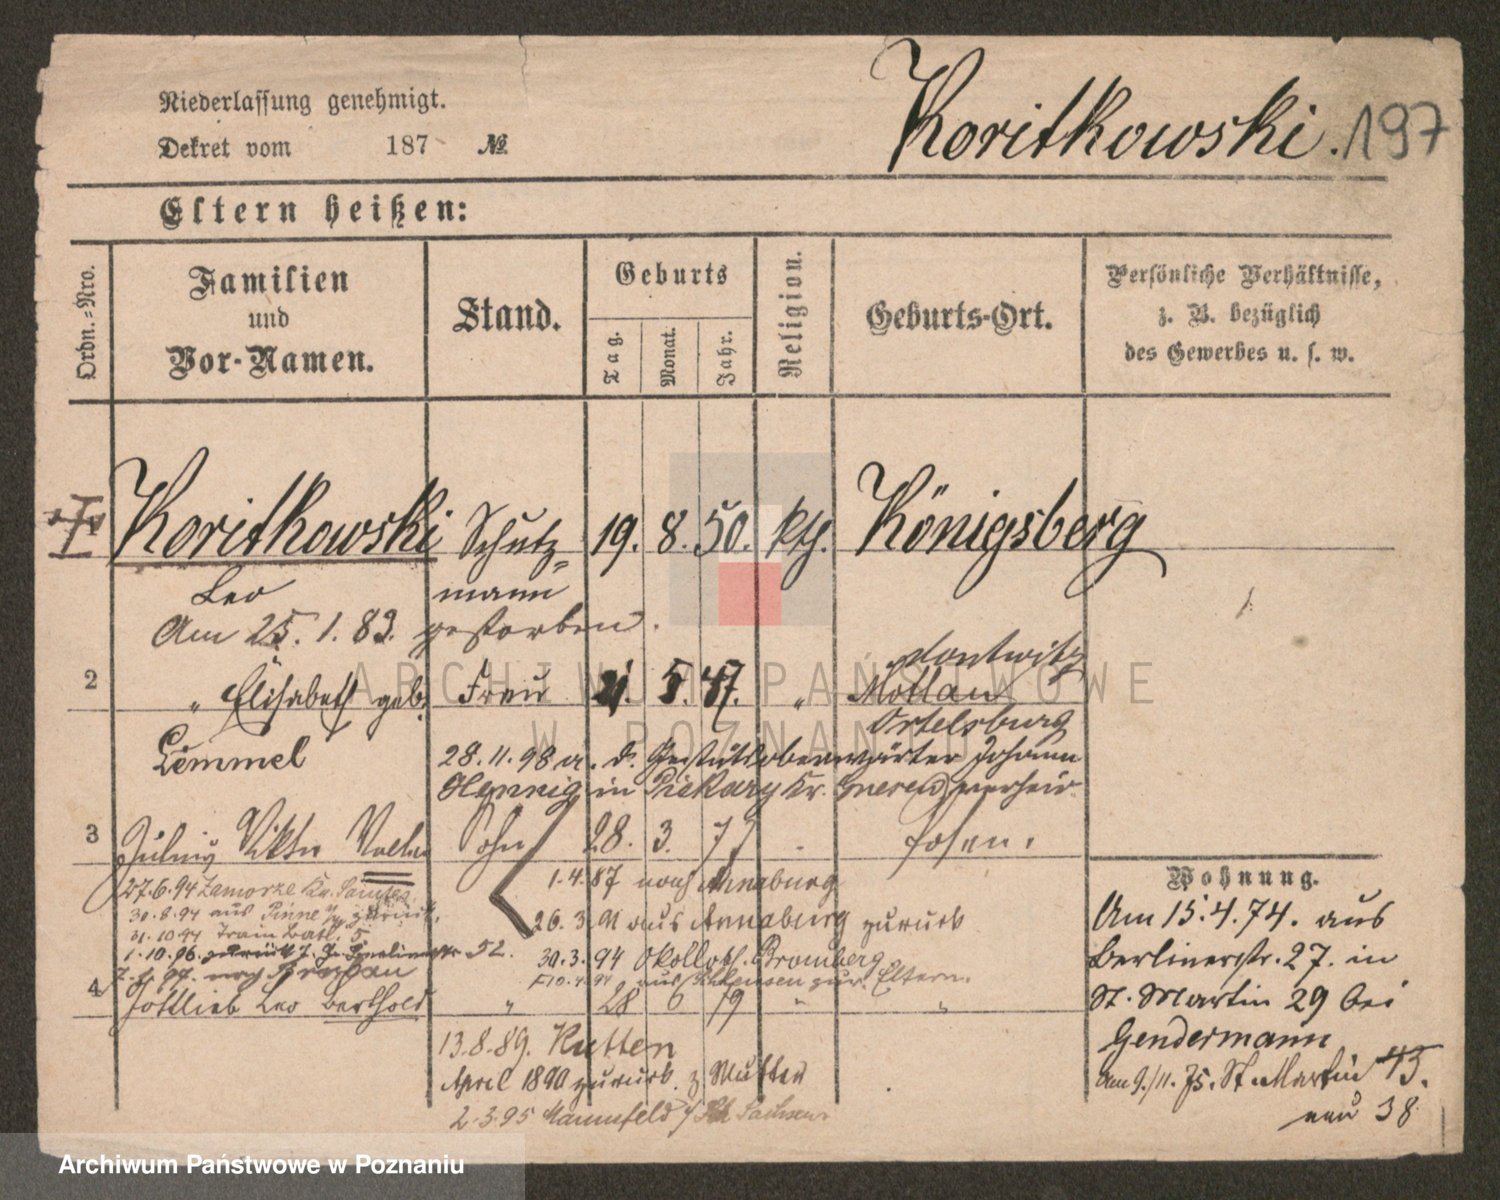 Niederlassung genehmigt.
Dekret vom 187 №
Koritkowski. 197
Eltern heißen:
Ordn.-Nro.
Familien
und
Vor-Namen.
Stand.
Geburts
Tag.
Monat.
Jahr.
Religion.
Geburts-Ort.
Persönliche Verhältnisse,
z. B. bezüglich
des Gewerbes u. s. w.
Koritkowski Schutz= 19. 8. 50. kth. Königsberg
Leo mann
Am 25. 1. 83. gestorben.
2 " Elisabeth geb. Frau 5. 47. "
Ortelsburg
Lemmel
28.11.98 a. d. Gestütsoberwärter Johann
Hennig in Piekary Kr. Gnesen verheir.
3 Viktor Sohn 28. 3. 77 Posen.
27.6.94 Zamorze Kr. Samter
1.4.87 nach Annaburg
30.8.94 aus Pinne zurück.
26.3.91 aus Annaburg zurück
31.10.94 Train Batl. 5
1.10.96. 52.
30.3.94 Bromberg
nach Breslau
Eltern.
4 Gottlieb Leo Berthold " 28 6 79 " "
13.8.89. Rutten
April 1890 zurück z Mutter
2.3.95 Mannsfeld Sachsen
Wohnung.
Am 15.4.74. aus
Berlinerstr. 27. in
St. Martin 29 bei
Gendermann
Am 9./11. 75. St. Martin 43.
neu 38
ARCHIWUM PAŃSTWOWE
W POZNANIU
Archiwum Państwowe w Poznaniu